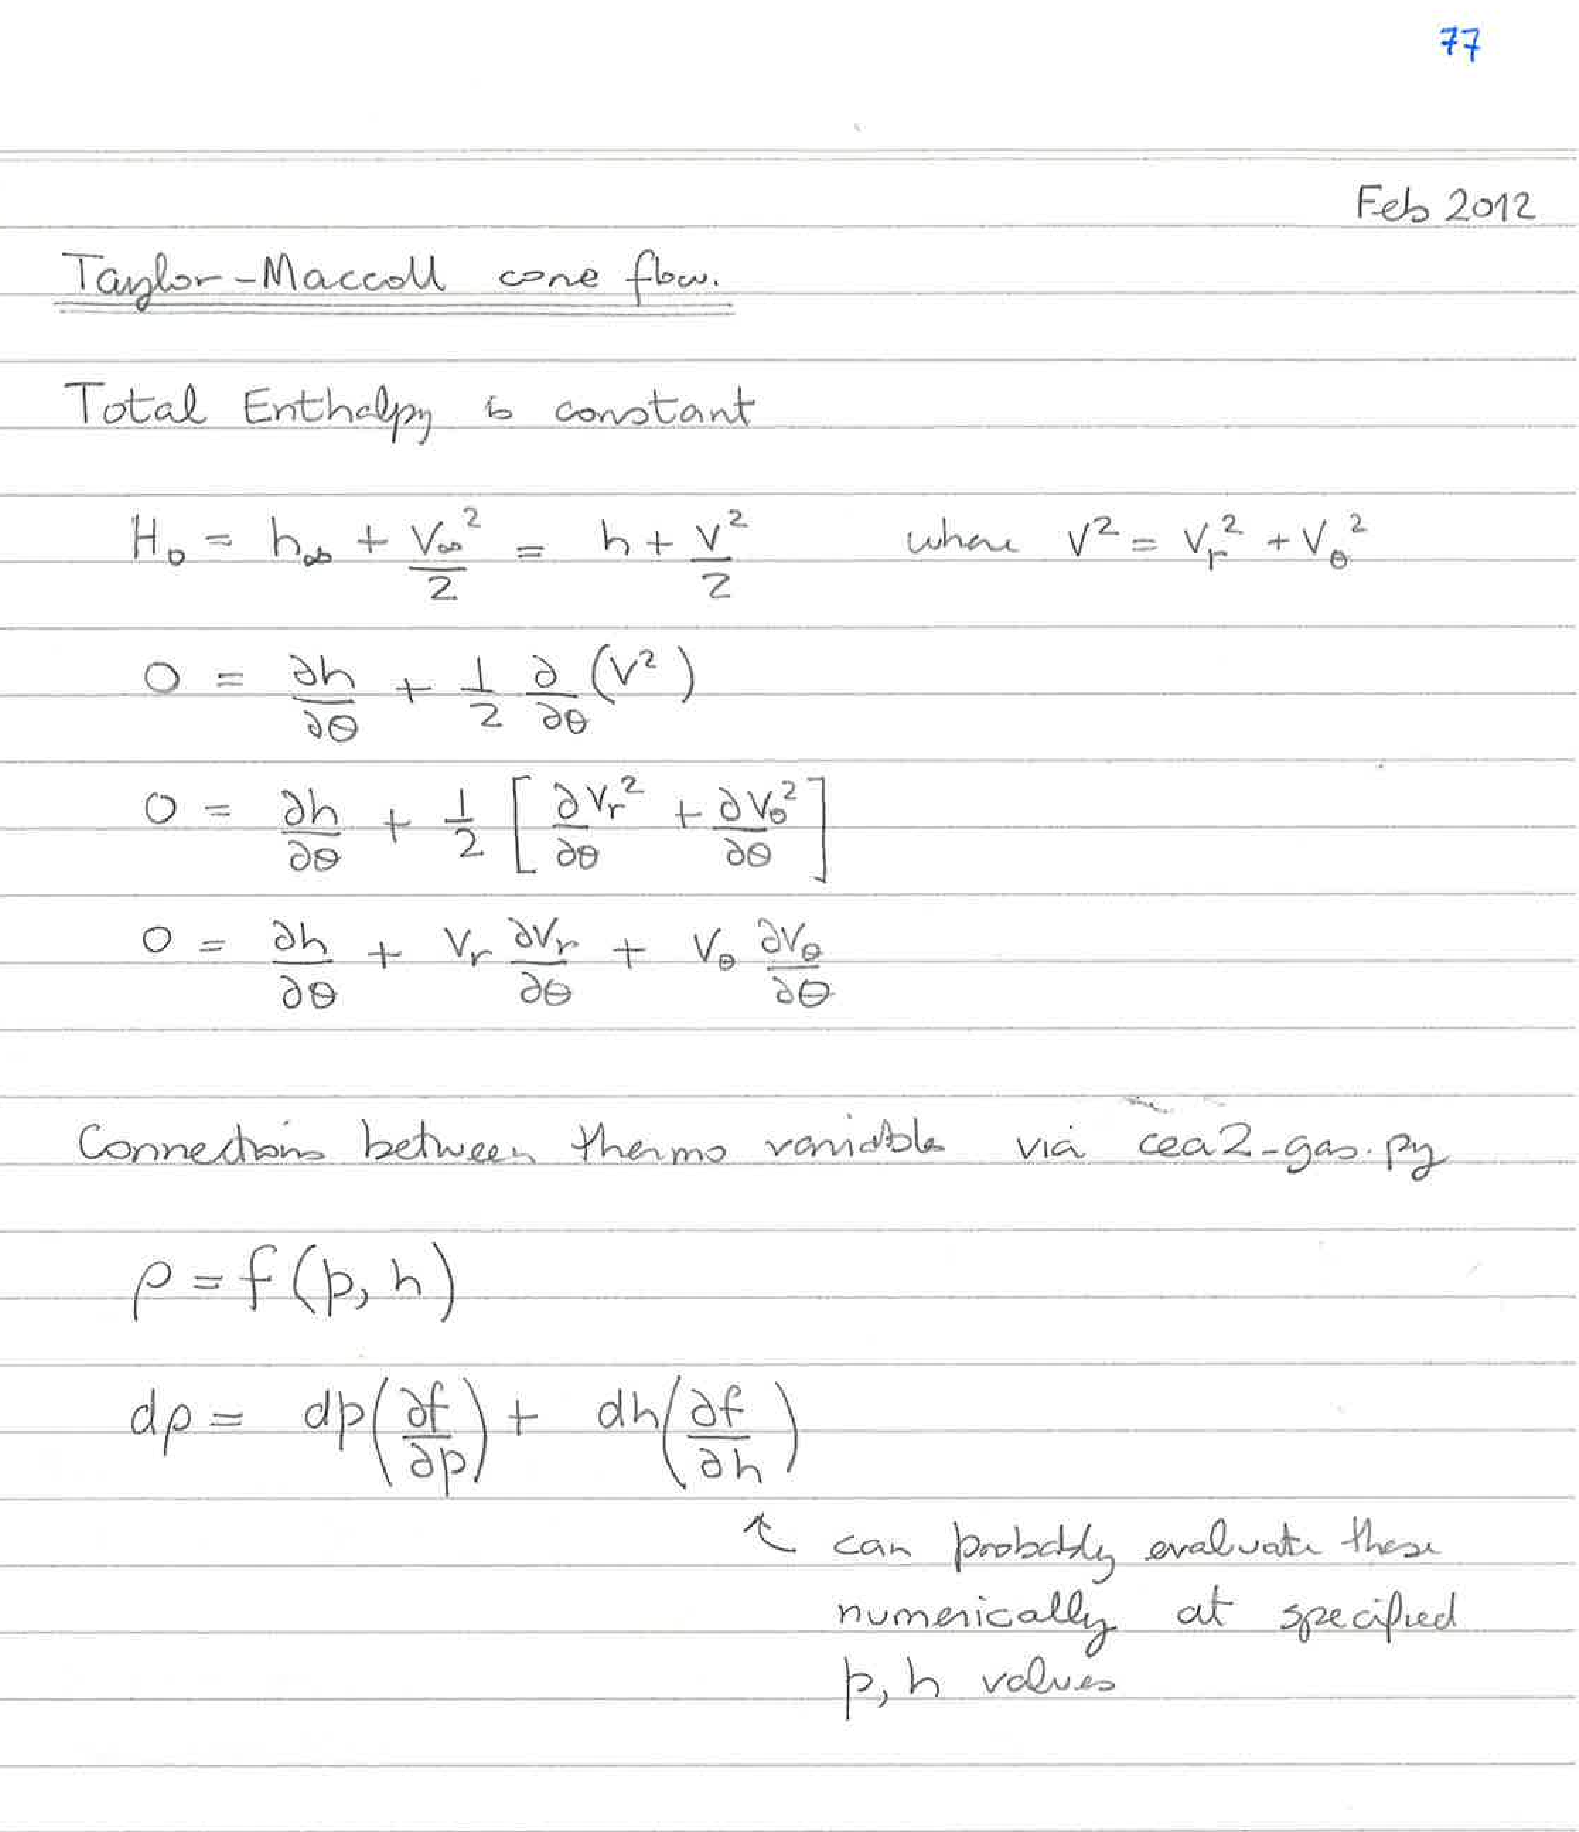 77
Feb 2012
Taylor-Maccoll cone flow.
Total Enthalpy is constant
H₀ = h∞ + V∞²/2 = h + V²/2 where V² = Vr² + Vθ²
0 = ∂h/∂θ + 1/2 ∂/∂θ (V²)
0 = ∂h/∂θ + 1/2 [∂Vr²/∂θ + ∂Vθ²/∂θ]
0 = ∂h/∂θ + Vr ∂Vr/∂θ + Vθ ∂Vθ/∂θ
Connections between thermo variables via cea2-gas.py
ρ = f(p, h)
dρ = dp(∂f/∂p) + dh(∂f/∂h)
↖ can probably evaluate these
numerically at specified
p, h values